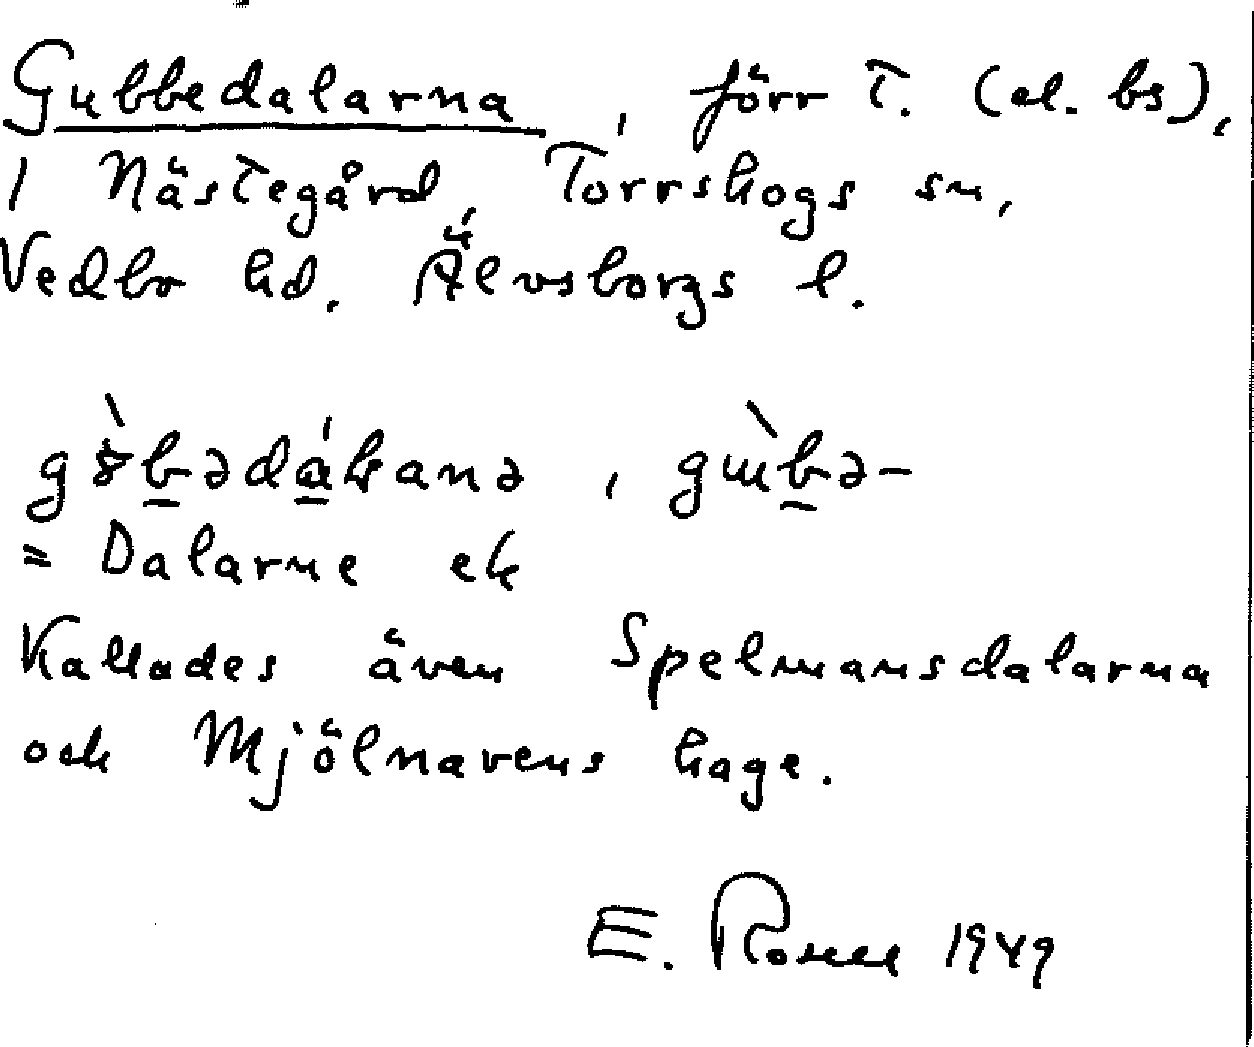 Gubbedalarna, förr T. (el. bs),
i Nästegård, Torrskogs sn,
Vedbo hd. Älvsborgs l.
= Dalarne ek
Kallades även Spelmansdalarna
och Mjölnavens hage.
E. Rosell 1949